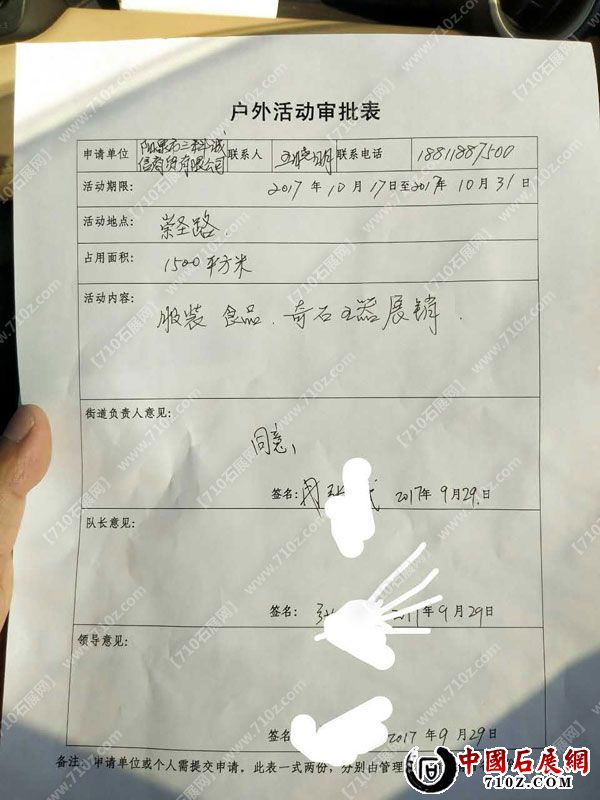 户外活动审批表
申请单位 阳泉市三科诚信商贸有限公司 联系人 联系电话 18811887500
活动期限: 2017年10月17日至2017年10月31日
活动地点: 荣圣路.
占用面积: 1500平方米
活动内容:
服装 食品.奇石玉器展销.
街道负责人意见:
同意,
签名: 2017年9月29日
队长意见:
签名: 2017年9月29日
领导意见:
签名: 2017年9月29日
备注: 申请单位或个人需提交申请。此表一式两份,分别由管理
中國石展網
710Z.COM
【710石展网】
www.710z.com